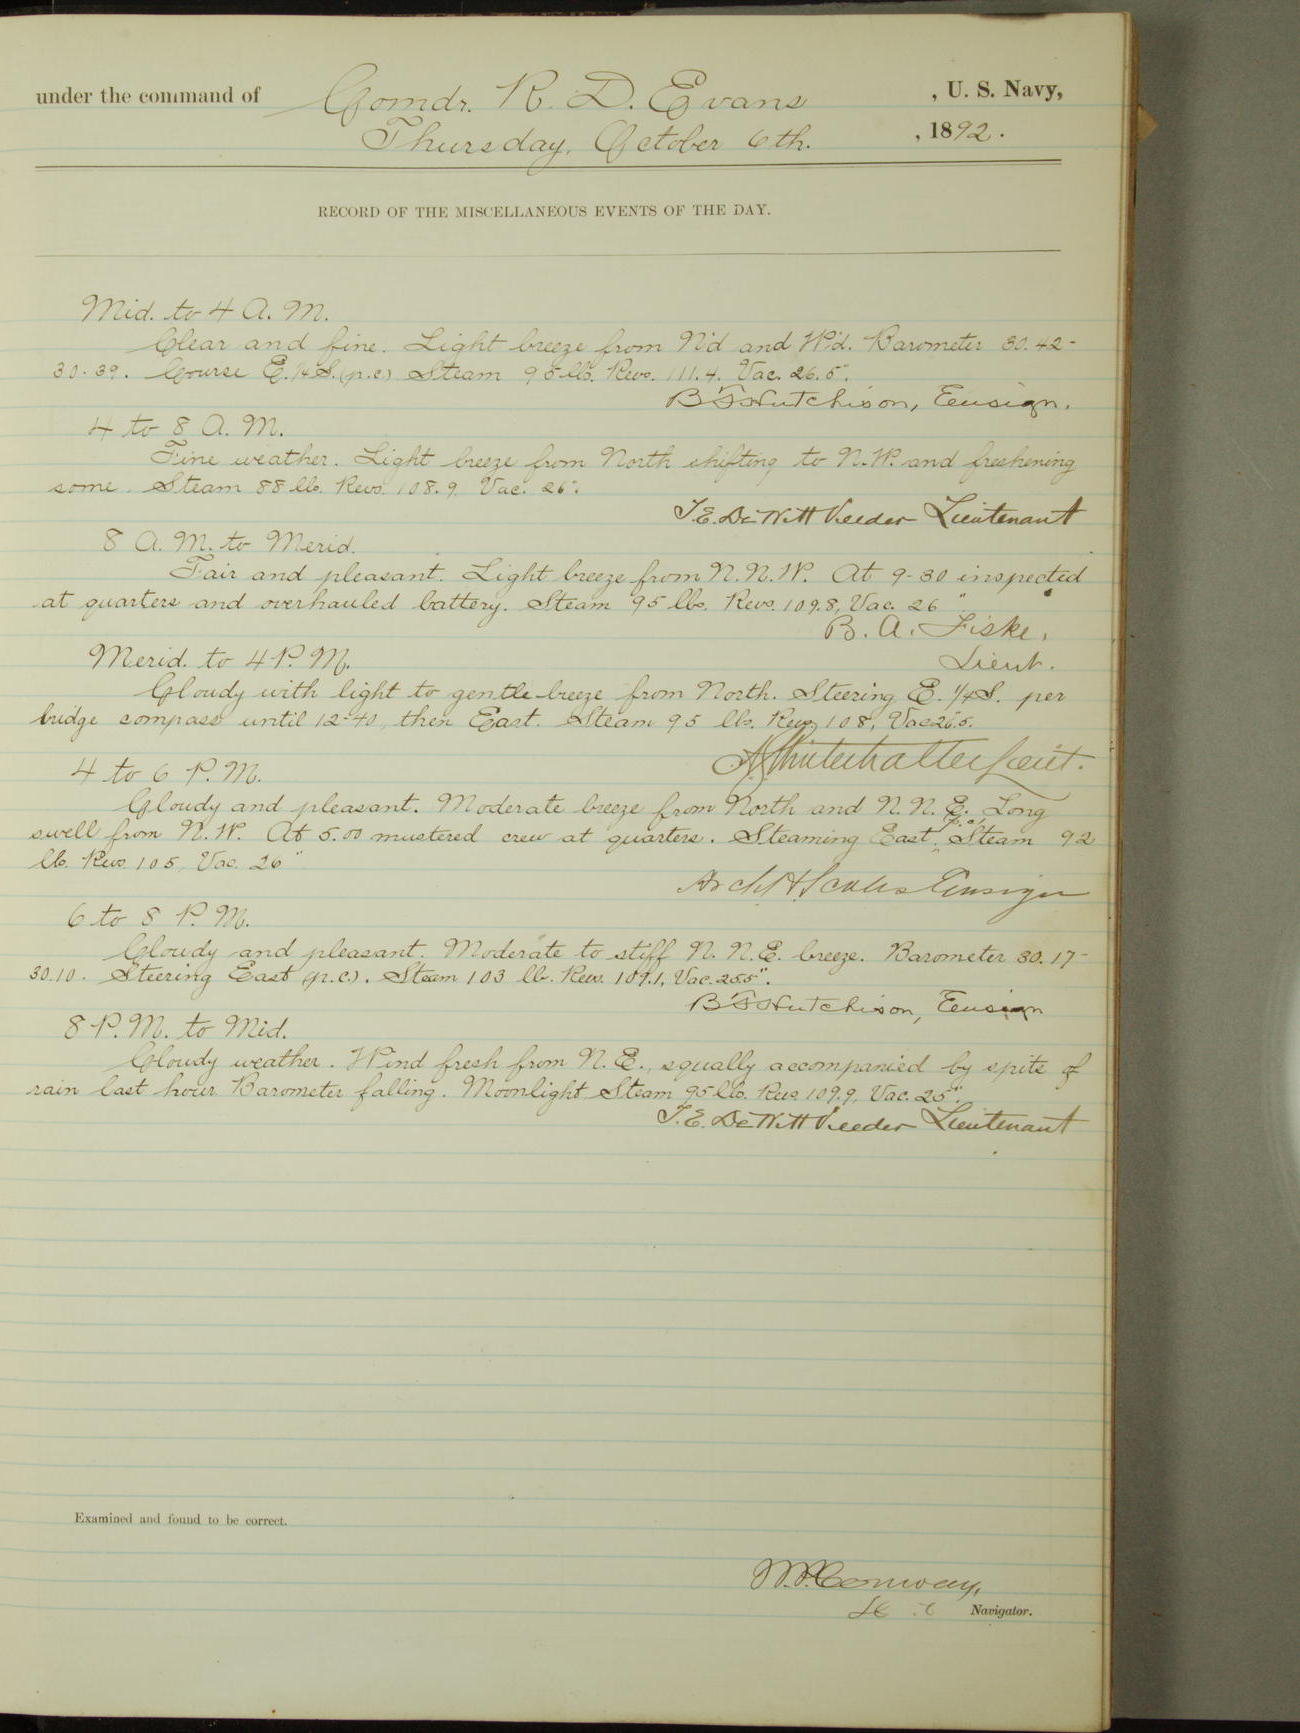 under the command of Comdr. R. D. Evans, U. S. Navy,
Thursday, October 6th., 1892.
RECORD OF THE MISCELLANEOUS EVENTS OF THE DAY.
Mid. to 4 A. M.
Clear and fine. Light breeze from N'd and W'd. Barometer 30.42-
30.39. Course E. 1/4 S. (p.c) Steam 95 lb. Revs. 111.4. Vac. 26.5".
B F Hutchison, Ensign.
4 to 8 A. M.
Fine weather. Light breeze from North shifting to N. W. and freshening
some. Steam 88 lb. Revs. 108.9. Vac. 26".
T. E. DeWitt Veeder Lieutenant
8 A. M. to Merid.
Fair and pleasant. Light breeze from N. N. W. At 9-30 inspected
at quarters and overhauled battery. Steam 95 lbs. Revs. 109.8, Vac. 26".
B. A. Fiske,
Lieut.
Merid. to 4 P. M.
Cloudy with light to gentle breeze from North. Steering E. 1/4 S. per
bridge compass until 12-40, then East. Steam 95 lb. Revs. 108, Vac 26.5.
Winterhalter Lieut.
4 to 6 P. M.
Cloudy and pleasant. Moderate breeze from North and N. N. E. Long
swell from N. W. At 5.00 mustered crew at quarters. Steaming East p.c, Steam 92
lb. Revs 105, Vac. 26"
Arch H Scales Ensign
6 to 8 P. M.
Cloudy and pleasant. Moderate to stiff N. N. E. breeze. Barometer 30.17-
30.10. Steering East (p.c.). Steam 103 lb. Revs. 109.1, Vac. 25.5".
B F Hutchison, Ensign
8 P. M. to Mid.
Cloudy weather. Wind fresh from N. E., squally accompanied by spits of
rain last hour Barometer falling. Moonlight Steam 95 lb. Revs 109.9, Vac. 25".
T. E. DeWitt Veeder Lieutenant
Examined and found to be correct.
W. P. Conway,
Navigator.